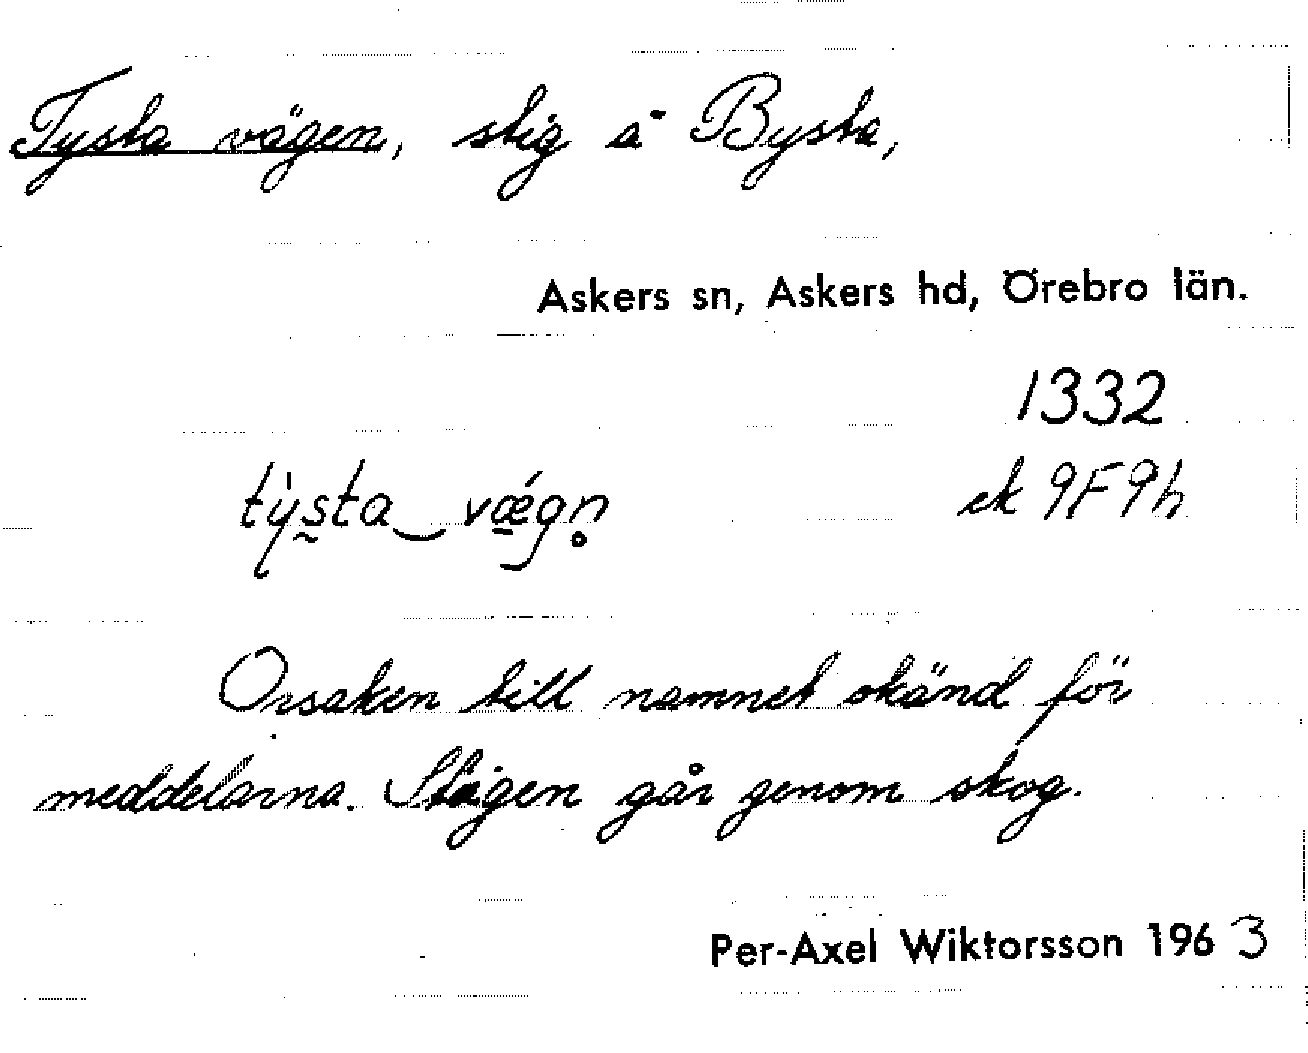 Tysta vägen, stig å Bysta,
Askers sn, Askers hd, Örebro län.
1332
týsta‿vǽgn̥ ek 9F9h
Orsaken till namnet okänd för
meddelarna. Stigen går genom skog.
Per-Axel Wiktorsson 1963